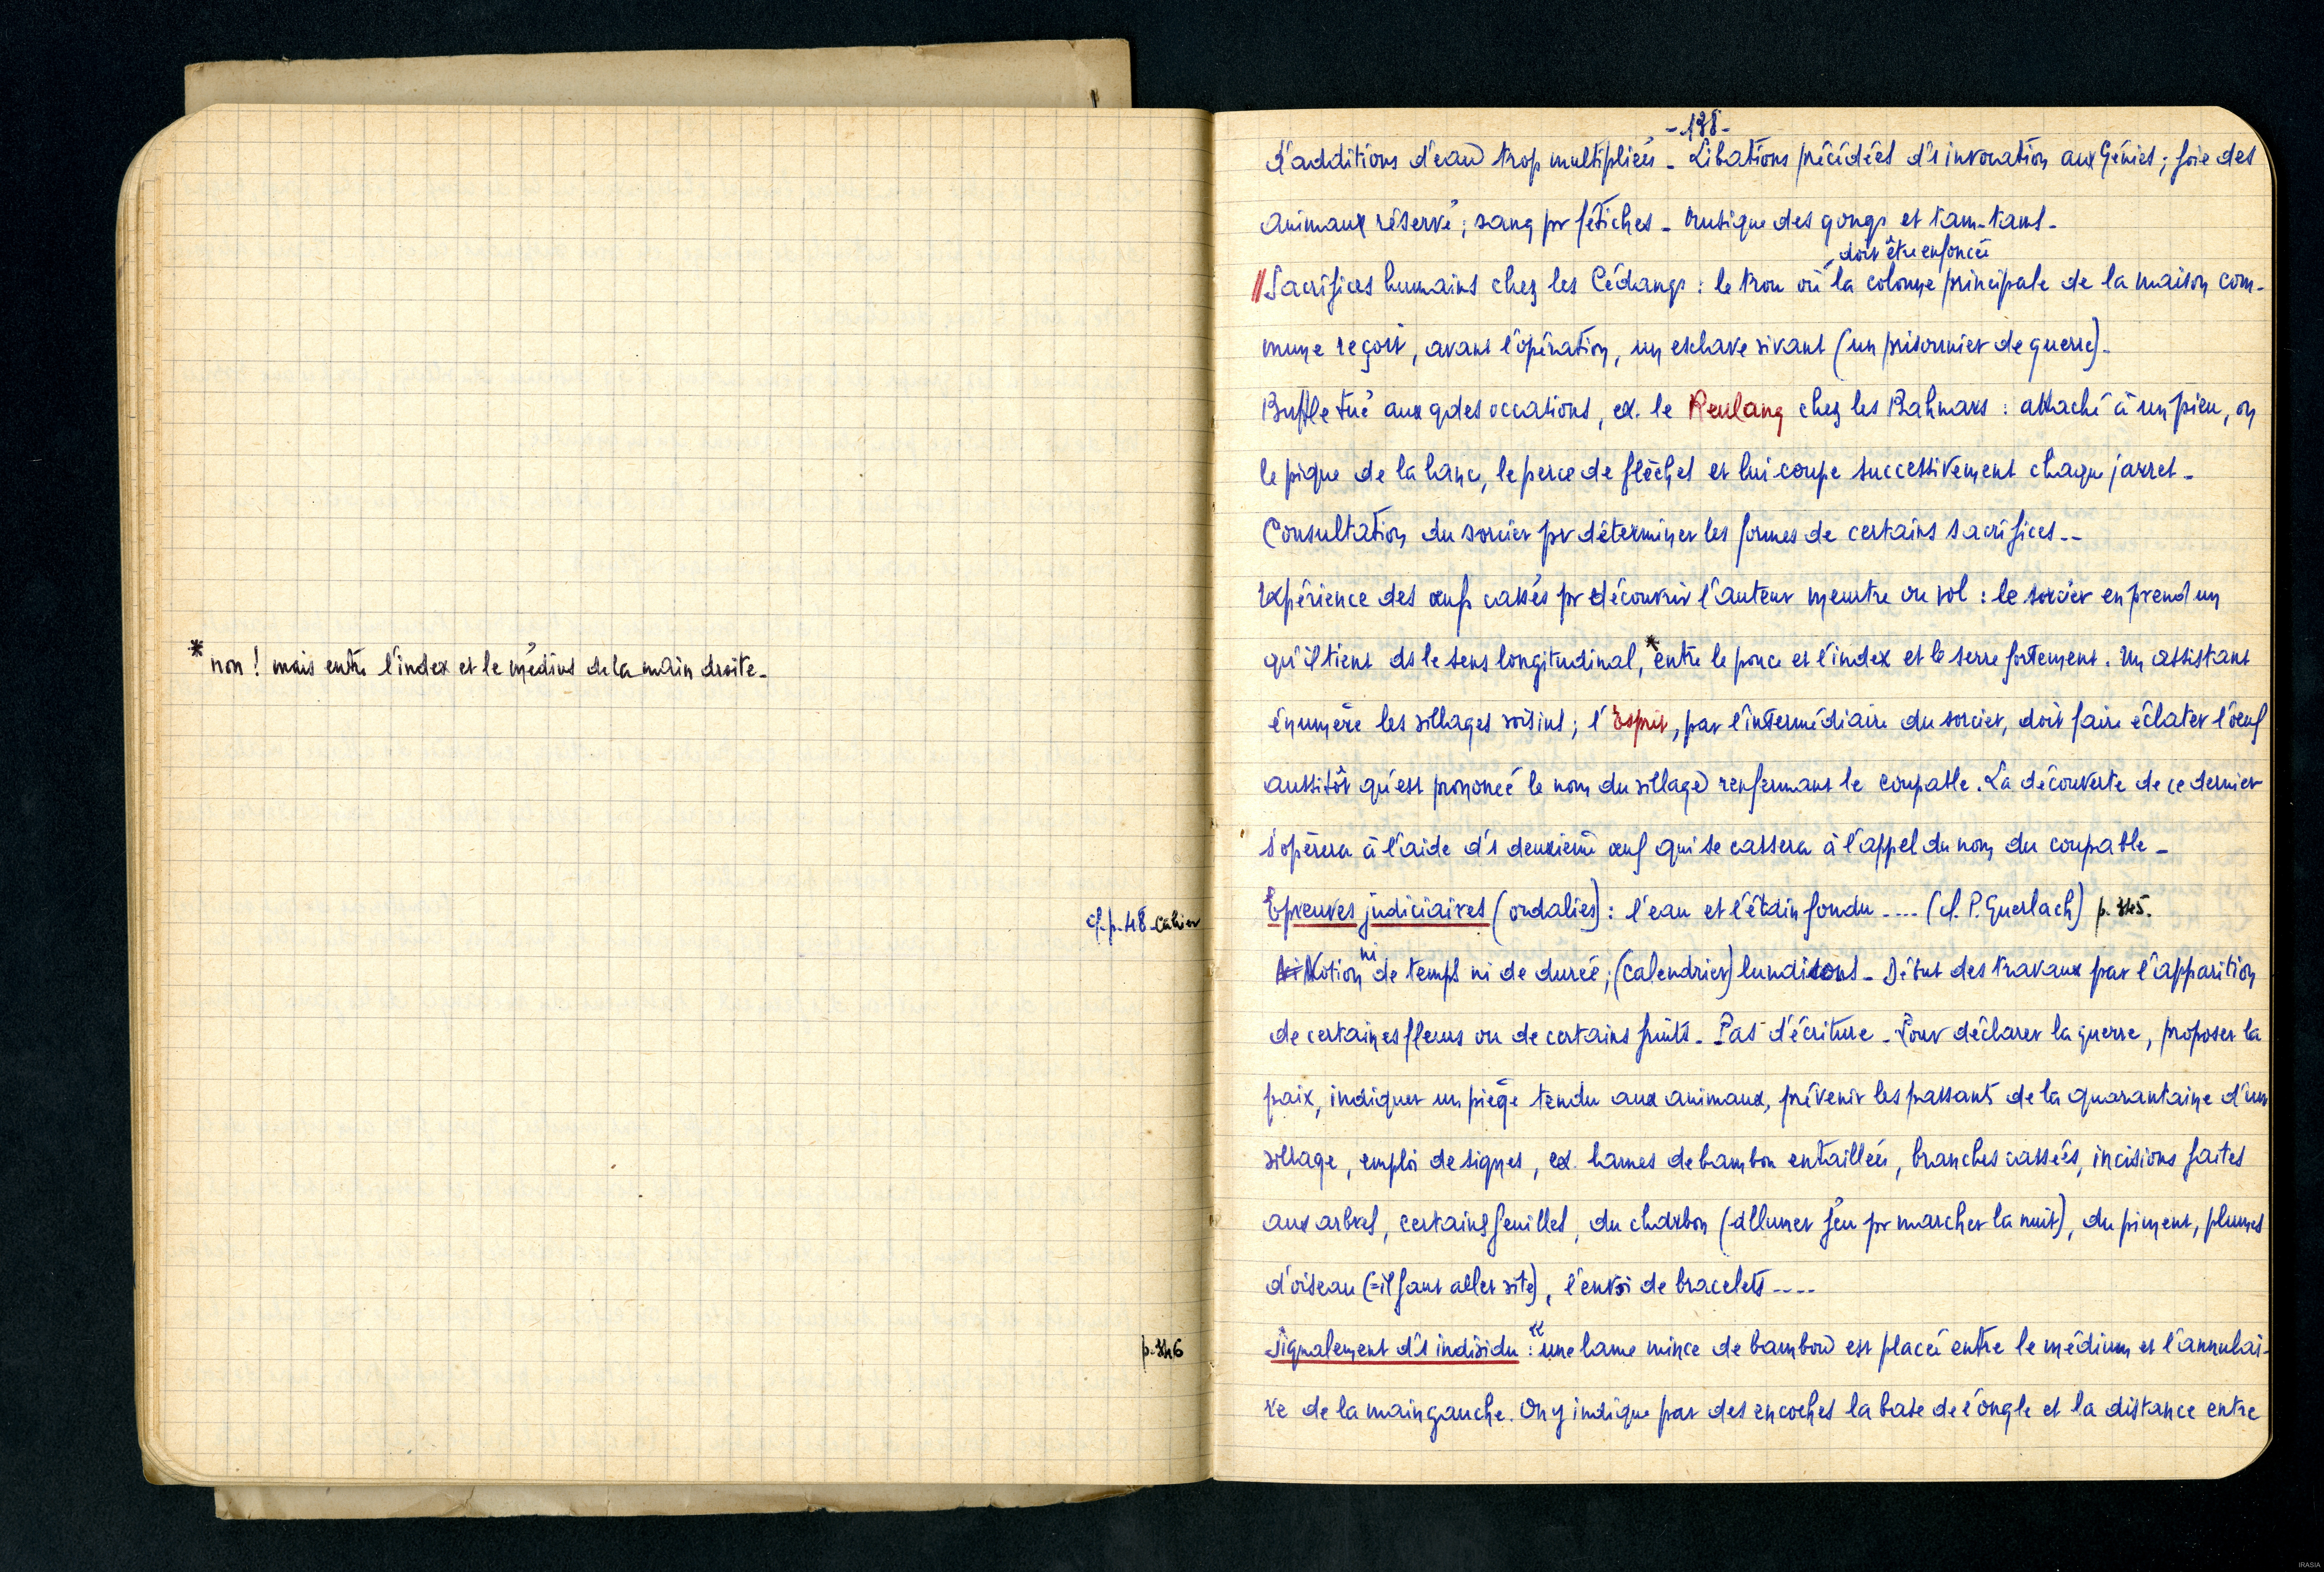 * non ! mais entre l'index et le médius de la main droite_
cf. p. 48 _ Cahier
p. 346
_ 138 _
d'additions d'eau trop multipliées _ Libations précédées d'1 invocation aux Génies ; foie des
animaux réservé ; sang pr fétiches _ Musique des gongs et tam-tams_
doit être enfoncée
// Sacrifices humains chez les Cédangs : le trou où la colonne principale de la maison com-
mune reçoit, avant l'opération, un esclave vivant (un prisonnier de guerre)_
Buffle tué aux gdes occations, ex. le Reulang chez les Bahnars : attaché à un pieu, on
le pique de la lance, le perce de flèches et lui coupe successivement chaque jarret _
Consultation du sorcier pr déterminer les formes de certains sacrifices _ _
Expérience des œufs cassés pr découvrir l'auteur meurtre ou vol : le sorcier en prend un
qu'il tient ds le sens longitudinal, * entre le pouce et l'index et le serre fortement. Un assistant
énumère les villages voisins ; l'Esprit, par l'intermédiaire du sorcier, doit faire éclater l'œuf
aussitôt qu'est prononcé le nom du village renfermant le coupable. La découverte de ce dernier
s'opérera à l'aide d'1 deuxième œuf qui se cassera à l'appel du nom du coupable _
Epreuves judiciaires (ordalies) : l'eau et l'étain fondu .... (cf. P. Guerlach) p. 345.
Ni Notion ni de temps ni de durée ; (calendrier) lunaisons _ Début des travaux par l'apparition
de certaines fleurs ou de certains fruits _ Pas d'écriture _ Pour déclarer la guerre, proposer la
paix, indiquer un piège tendu aux animaux, prévenir les passants de la quarantaine d'un
village, emploi de signes, ex. lames de bambou entaillées, branches cassées, incisions faites
aux arbres, certaines feuilles, du charbon (allumer feu pr marcher la nuit), du piment, plumes
d'oiseau (= il faut aller vite), l'envoi de bracelets ....
Signalement d'1 individu : "une lame mince de bambou est placée entre le médium et l'annulai-
re de la main gauche. On y indique par des encoches la base de l'ongle et la distance entre
IRASIA